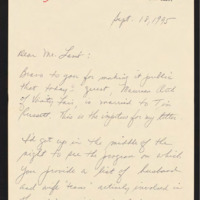 Sept. 12, 1995
Dear Mr. Lamb:
Bravo to you for making it public
that today's guest, Maureen Orth
of Vanity Fair, is married to Tim
Russert. This is the impetus for my letter.
I'd get up in the middle of the
night to see the program on which
you provide a list of husband
and wife team' actively involved in
the